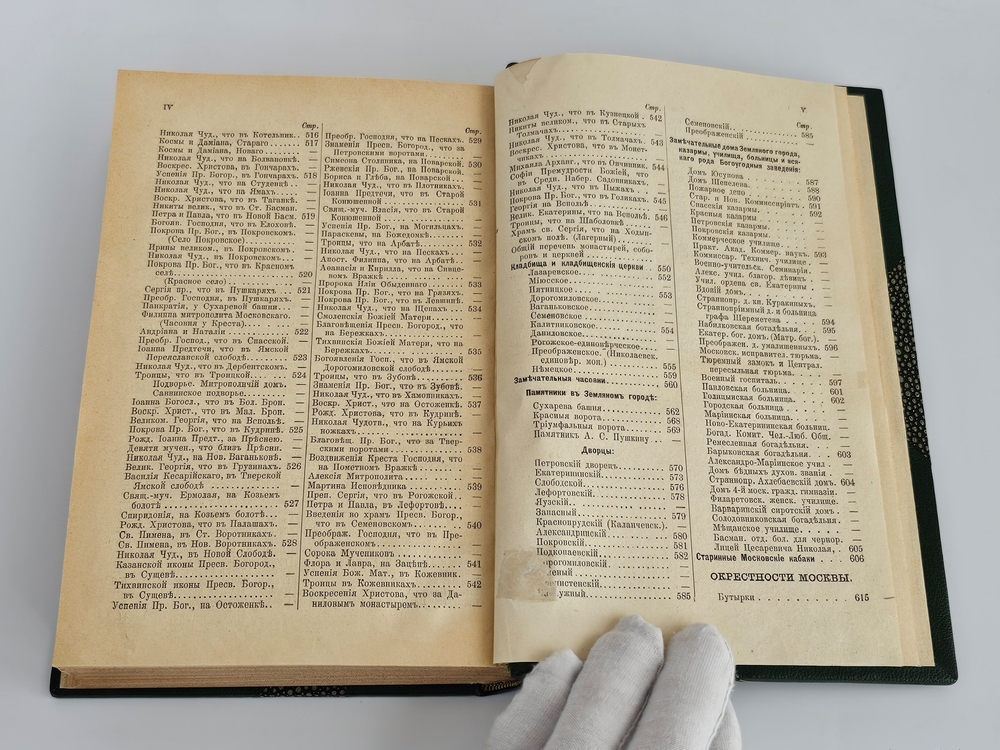 IV
Стр.
Николая Чуд., что въ Котельник. 516
Космы и Даміана, Стараго . . . 517
Космы и Даміана, Новаго . . . —
Николая Чуд., что на Болвановкѣ. —
Воскрес. Христова, въ Гончарахъ. —
Успенія Пр. Богор., въ Гончарахъ. 518
Николая Чуд., что на Студенцѣ . —
Николая Чуд., что на Ямахъ . . —
Воскр. Христова, что въ Таганкѣ. —
Никиты велик., что въ Ст. Басман. —
Петра и Павла, что въ Новой Басм. 519
Богоян. Господня, что въ Елоховѣ. —
Покрова Пр. Бог., въ Покровскомъ.
(Село Покровское) . . . —
Ирины великом., въ Покровскомъ. —
Николая Чуд., въ Покровскомъ. . —
Покрова Пр. Бог., что въ Красномъ
селѣ . . . 520
(Красное село) . . . —
Сергія пр., что въ Пушкаряхъ . 521
Преобр. Господня, въ Пушкаряхъ. —
Панкратія, у Сухаревой башни . —
Филиппа митрополита Московскаго. —
(Часовня у Креста) . . . —
Андріана и Наталіи . . . 522
Преобр. Господ., что въ Спасской. —
Іоанна Предтечи, что въ Ямской
Переяславской слободѣ . . . 523
Николая Чуд., что въ Дербентскомъ. —
Троицы, что въ Троицкой . . . 524
Подворье. Митрополичій домъ. —
Саввинское подворье . . . —
Іоанна Богосл., что въ Бол. Брон. —
Воскр. Христ., что въ Мал. Брон. —
Великом. Георгія, что на Вспольѣ. —
Покрова Пр. Бог., что въ Кудринѣ. 525
Рожд. Іоанна Предт., за Прѣснею. —
Девяти мучен., что близъ Прѣсни. —
Николая Чуд., на Нов. Ваганьковѣ. —
Велик. Георгія, что въ Грузинахъ. 526
Василія Кесарійскаго, въ Тверской
Ямской слободѣ . . . —
Свящ.-муч. Ермолая, на Козьемъ
болотѣ . . . 527
Спиридонія, на Козьемъ болотѣ . . —
Рожд. Христова, что въ Палашахъ. —
Св. Пимена, въ Ст. Воротникахъ. —
Св. Пимена, въ Нов. Воротникахъ. 528
Николая Чуд., въ Новой Слободѣ. —
Казанской иконы Пресв. Богород.,
въ Сущевѣ . . . —
Тихвинской иконы Пресв. Богор.,
въ Сущевѣ . . . —
Успенія Пр. Бог., на Остоженкѣ . . —
Стр.
Преобр. Господня, что на Пескахъ. 529
Знаменія Пресв. Богород., что за
Петровскими воротами . . . —
Симеона Столпника, на Поварской. 530
Ржевскія Пр. Бог., на Поварской. —
Бориса и Глѣба, на Поварской . —
Николая Чуд., что въ Плотникахъ. —
Іоанна Предтечи, что въ Старой
Конюшенной . . . 531
Свящ.-муч. Власія, что въ Старой
Конюшенной . . . —
Успенія Пр. Бог., на Могильцахъ. —
Параскевы, на Божедомкѣ . . . —
Троицы, что на Арбатѣ . . . 532
Николая Чуд., что на Пескахъ . —
Апост. Филиппа, что на Арбатѣ . —
Аѳанасія и Кирилла, что на Сивце-
вомъ Вражкѣ . . . —
Пророка Иліи Обыденнаго . . . 533
Покрова Пр. Бог., что на Грязяхъ. —
Покрова Пр. Бог., что въ Левшинѣ. —
Николая Чуд., что на Щепахъ . 534
Смоленскія Божіей Матери . . . —
Благовѣщенія Пресв. Богород., что
на Бережкахъ . . . —
Тихвинскія Божіей Матери, что на
Бережкахъ . . . 535
Богоявленія Госп., что въ Ямской
Дорогомиловской слободѣ . . . —
Троицы, что въ Зубовѣ . . . 536
Знаменія Пр. Бог., что въ Зубовѣ. —
Николая Чуд., что въ Хамовникахъ. —
Воскр. Христ., что на Остоженкѣ. 537
Рожд. Христова, что въ Кудринѣ. —
Николая Чудота., что на Курьихъ
ножкахъ . . . —
Благовѣщ. Пр. Бог., что за Твер-
скими воротами . . . 538
Воздвиженія Креста Господня, что
на Пометномъ Вражкѣ . . . —
Алексія Митрополита . . . —
Мартина Исповѣдника . . . 539
Преп. Сергія, что въ Рогожской . —
Петра и Павла, въ Лефортовѣ . . —
Введенія во храмъ Пресв. Богор.,
что въ Семеновскомъ . . . 540
Преображ. Господня, что въ Пре-
ображенскомъ . . . —
Сорока Мучениковъ . . . —
Флора и Лавра, на Зацѣпѣ . . . 541
Успенія Бож. Мат., въ Кожевник. —
Троицы въ Кожевникахъ . . . 542
Воскресенія Христова, что за Да-
ниловымъ монастыремъ . . . —
Стр.
Николая Чуд., что въ Кузнецкой . 542
Никиты великом., что въ Старыхъ
Толмачахъ . . . —
Николая Чуд., что въ Толмачахъ . 543
Воскрес. Христова, что въ Монет-
чикахъ . . . —
Михаила Арханг., что въ Овчинник. 544
Софіи Премудрости Божіей, что
въ Средн. Набер. Садовникахъ. —
Николая Чуд., что въ Пыжахъ . —
Покрова Пр. Бог., что въ Голикахъ. 545
Георгія на Вспольѣ . . . —
Велик. Екатерины, что на Вспольѣ. 546
Троицы, что на Шаболовкѣ . . . —
Храмъ св. Сергія, что на Ходын-
скомъ полѣ. (Лагерный) . . . —
Общій перечень монастырей, собо-
ровъ и церквей . . . —
Кладбища и кладбищенскія церкви . 550
Лазаревское . . . 552
Міюсское . . . —
Пятницкое . . . —
Дорогомиловское . . . 553
Ваганьковское . . . —
Семеновское . . . —
Калитниковское . . . —
Даниловское . . . 554
Рогожское-единовѣрческое . . . —
Преображенское. (Николаевск.
единовѣр. мон.) . . . 555
Нѣмецкое . . . 559
Замѣчательныя часовни . . . 560
Памятники въ Земляномъ городѣ:
Сухарева башня . . . 562
Красныя ворота . . . 568
Тріумфальныя ворота . . . 569
Памятникъ А. С. Пушкину . . . —
Дворцы:
Петровскій дворецъ . . . 570
Екатерининскій . . . 573
Слободской . . . 576
Лефортовскій . . . 578
Яузскій . . . —
Запасный . . . 579
Краснопрудскій (Каланчевск.) . . —
Александринскій . . . 580
Покровскій . . . 581
Подкопаевскій . . . 582
рогомиловскій . . . —
. . . 585
V
Стр.
Семеновскій . . . 585
Преображенскій . . . —
Замѣчательные дома Землянаго города,
казармы, училища, больницы и вся-
каго рода Богоугодныя заведенія:
Домъ Юсупова . . . 587
Домъ Шепелева . . . 588
Пожарное депо . . . 590
Стар. и Нов. Коммиссаріатъ . . 591
Спасскія казармы . . . 592
Красныя казармы . . . —
Петровскія казармы . . . —
Покровскія казармы . . . —
Коммерческое училище . . . —
Практ. Акад. Коммер. наукъ . 593
Коммиссар. Технич. училище . —
Военно-учительск. Семинарія . —
Алекс. учил. благор. дѣвиц. . —
Учил. ордена св. Екатерины . —
Вдовій домъ . . . —
Страннопр. д. кн. Куракиныхъ. —
Страннопріимный д. и больница
графа Шереметева . . . 594
Набилковская богадѣльня . . . 595
Екатер. бог. домъ (Матр. бог.) . —
Преображен. д. умалишенныхъ. 596
Московск. исправител. тюрьма . —
Тюремный замокъ и Централ.
пересыльная тюрьма . . . —
Военный госпиталь . . . 597
Павловская больница . . . 601
Голицынская больница . . . 602
Городская больница . . . —
Маріинская больница . . . —
Ново-Екатерининская больниц. —
Богад. Комит. Чел.-Люб. Общ. —
Ремесленная богадѣльня . . . —
Барыковская богадѣльня . . . 603
Александро-Маріинское учил . —
Домъ бѣдныхъ духов. званія . —
Страннопр. Ахлебаевскій домъ. 604
Домъ 4-й моск. гражд. гимназіи. —
Филаретовск. женск. училище. —
Варваринскій сиротскій домъ . —
Солодовниковская богадѣльня . —
Мѣщанское училище . . . —
Басман. отд. бол. для чернор. —
Лицей Цесаревича Николая . . 605
Старинные Московскіе кабаки . . . 606
ОКРЕСТНОСТИ МОСКВЫ.
Бутырки . . . 615 —